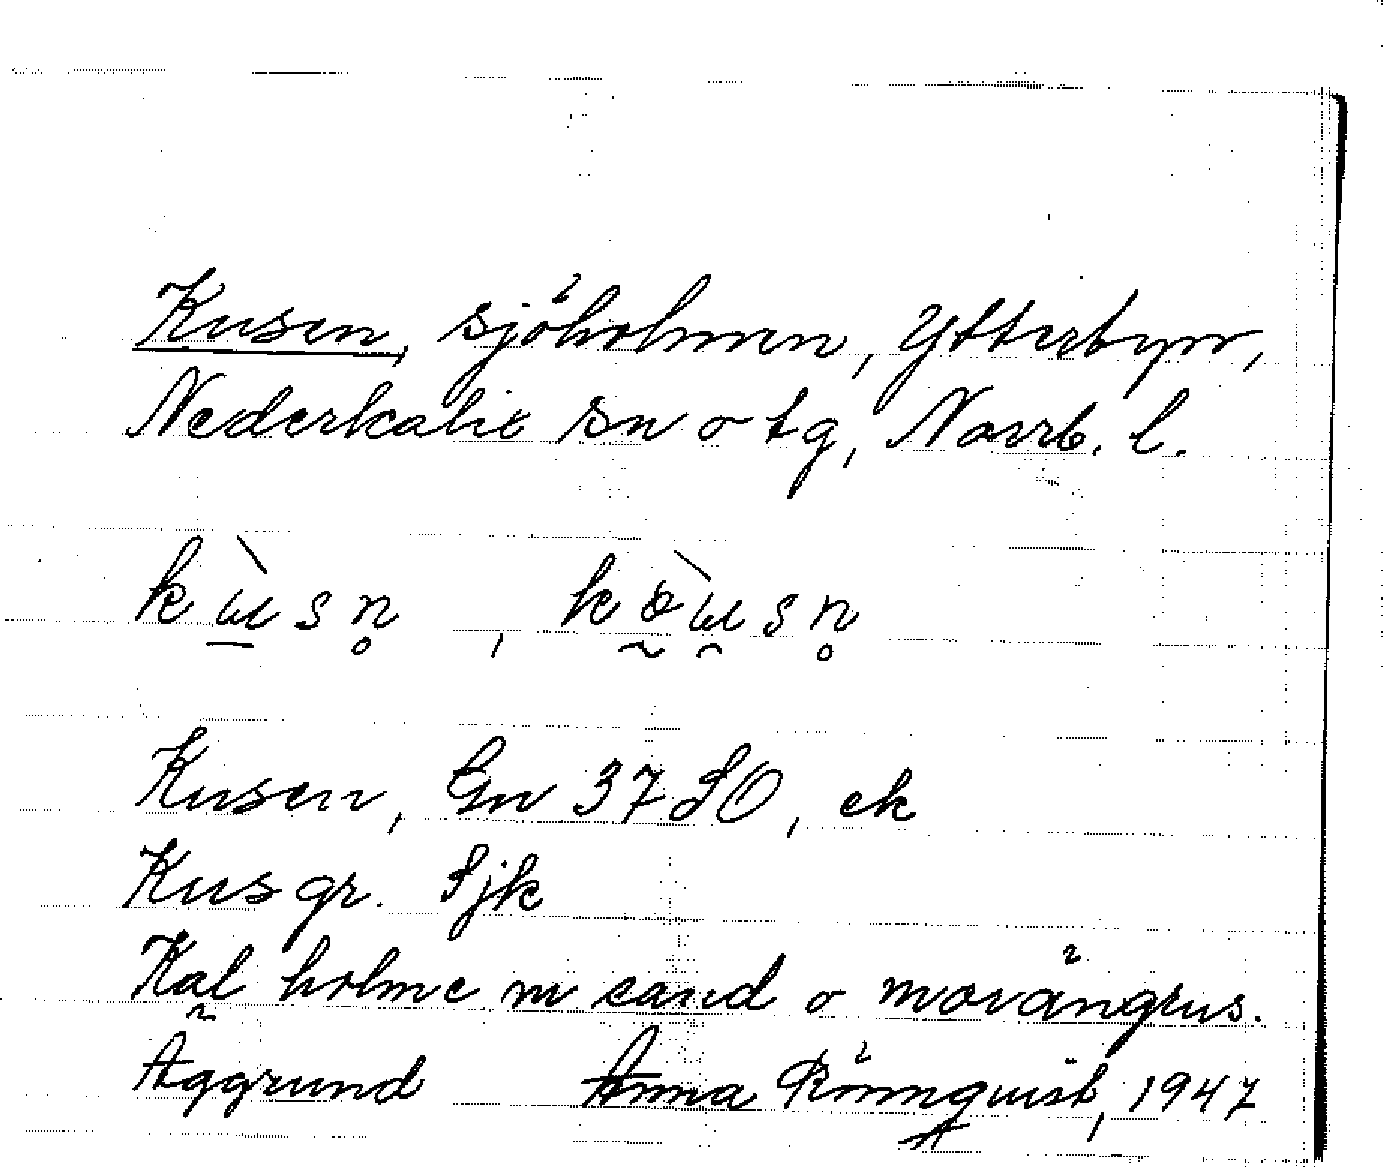 Kusen, sjöholmen, Ytterbyn,
Nederkalix sn o tg, Norrb. l.
kɯ̀sn̥, kɵɯ̀sn̥
Kusen, Gn 37 SO, ek
Kusgr. Sjk
Kal holme m sand o morängrus.
Aggrund Anna Rönnquist, 1947